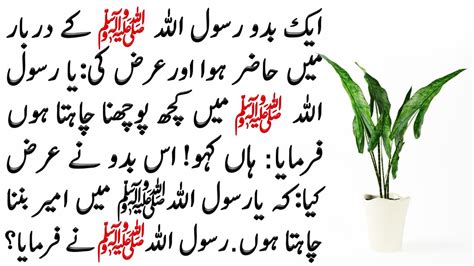 ایک بدو رسول اللہ ﷺ کے دربار
میں حاضر ہوا اور عرض کی: یا رسول
اللہ ﷺ میں کچھ پوچھنا چاہتا ہوں
فرمایا: ہاں کہو! اس بدو نے عرض
کیا: کہ یا رسول اللہ ﷺ میں امیر بننا
چاہتا ہوں. رسول اللہ ﷺ نے فرمایا؟